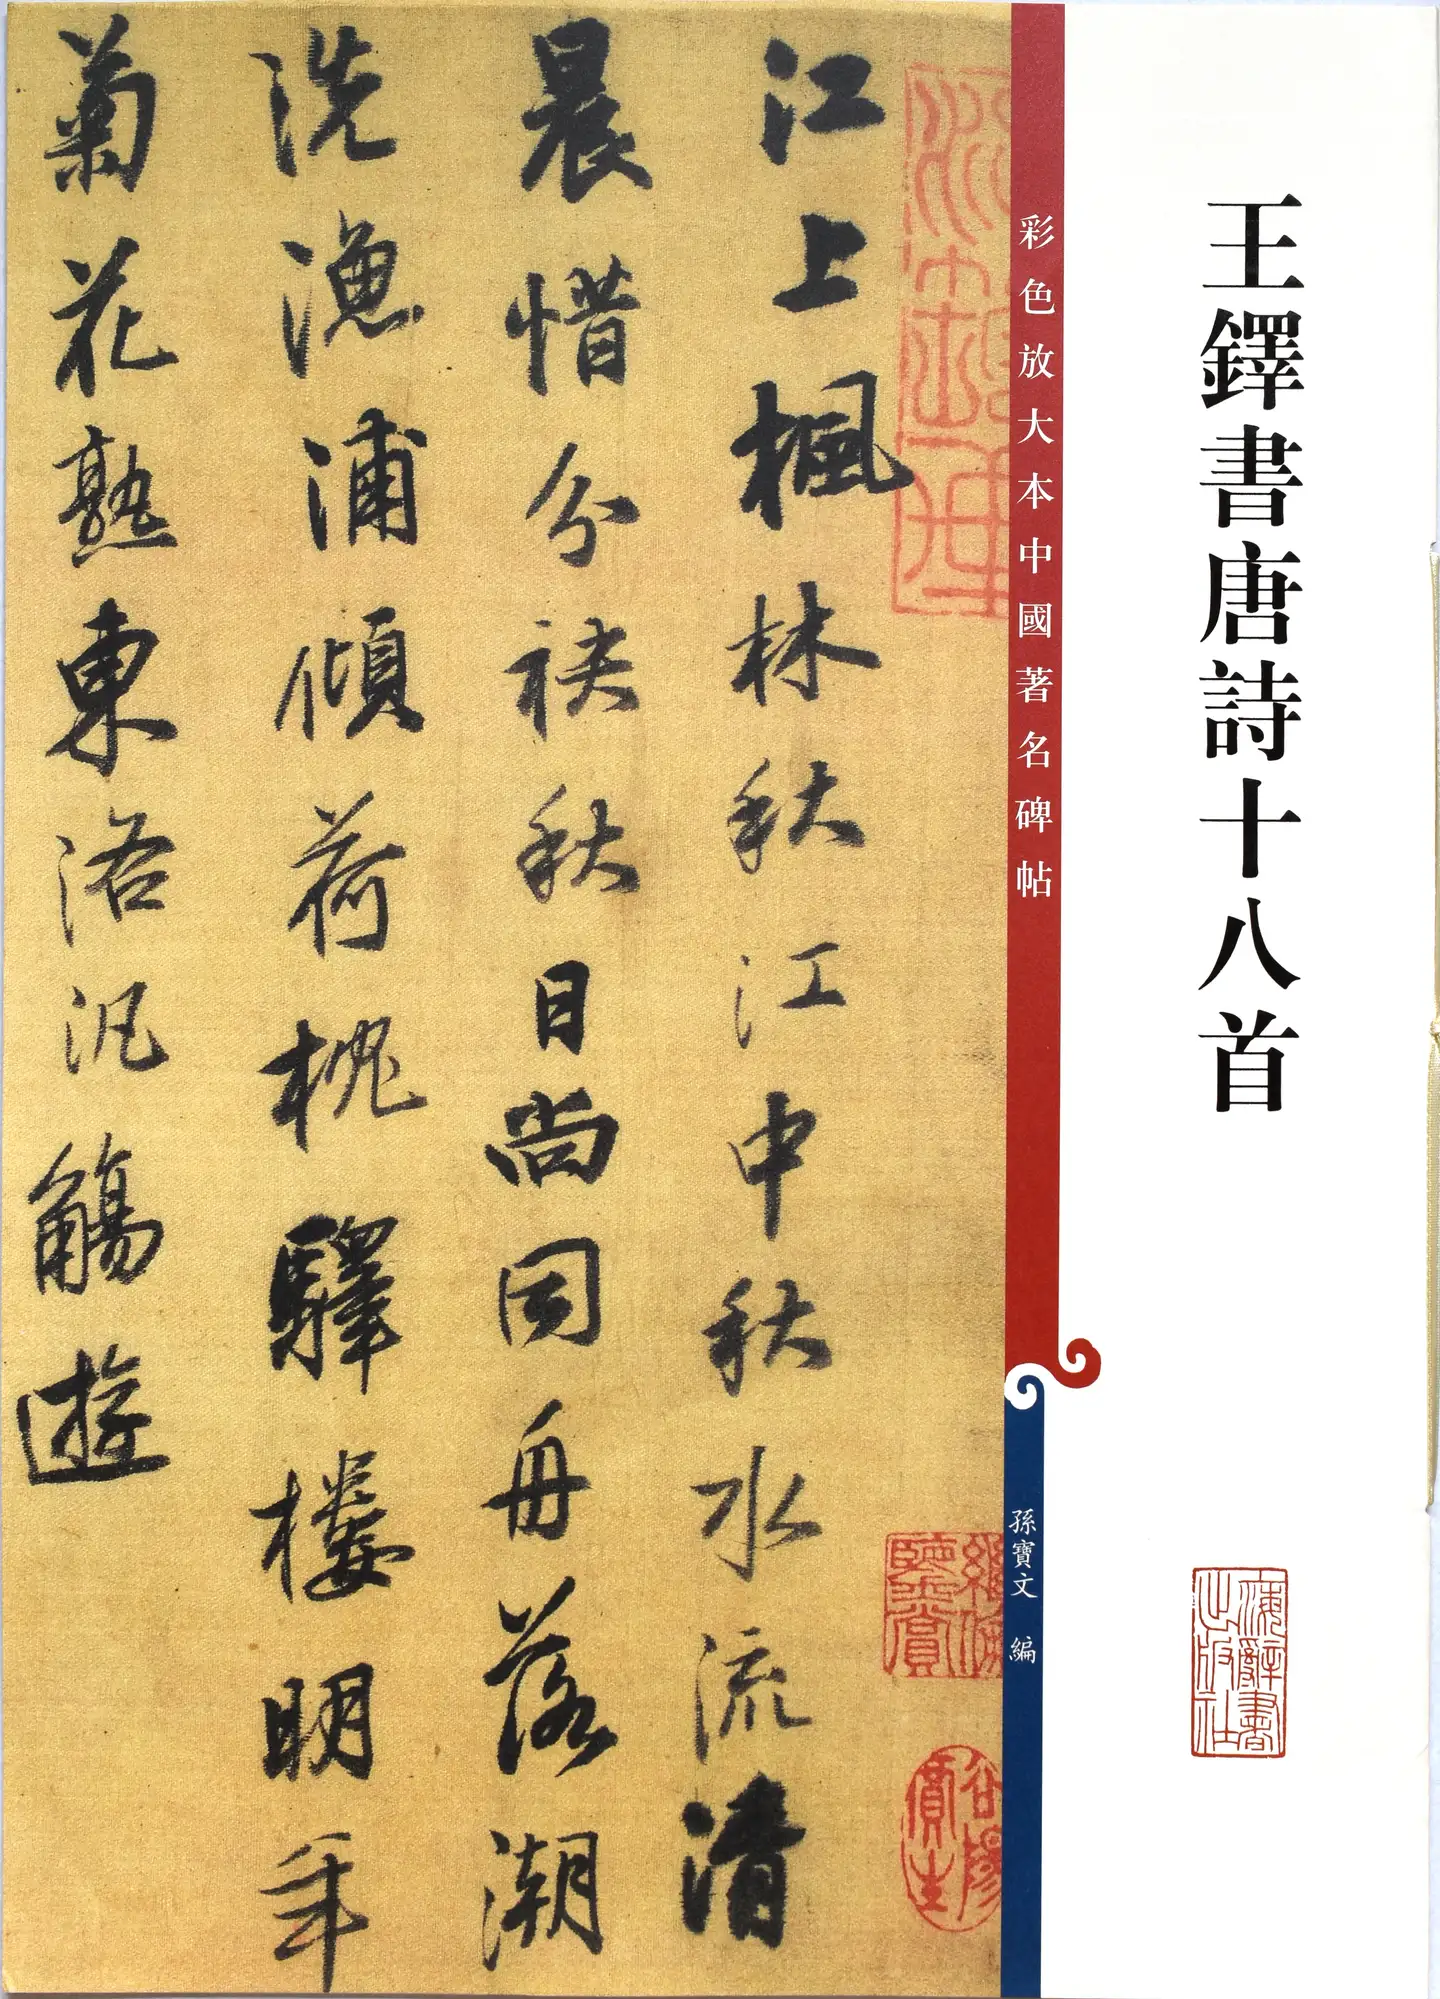 王鐸書唐詩十八首
上海辭書出版社
彩色放大本中國著名碑帖
孫寶文 編
江上楓林秋江中秋水流清
晨惜分袂秋日尚同舟落潮
洗漁浦傾荷枕驛樓明年
菊花熟東洛汎觴遊